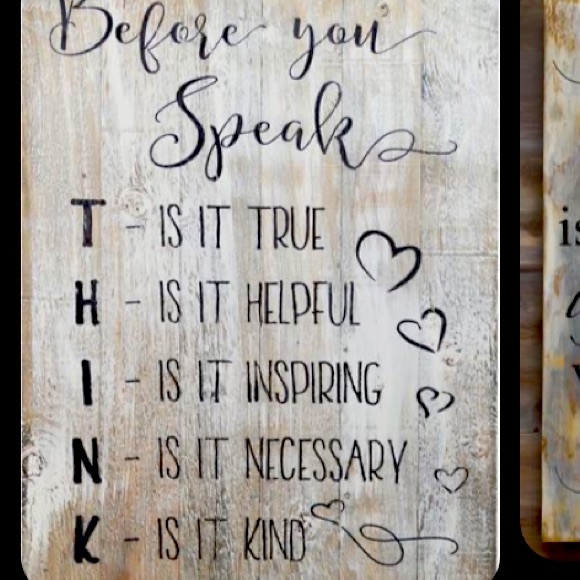 Before you
Speak
T - IS IT TRUE
H - IS IT HELPFUL
I - IS IT INSPIRING
N - IS IT NECESSARY
K - IS IT KIND
is